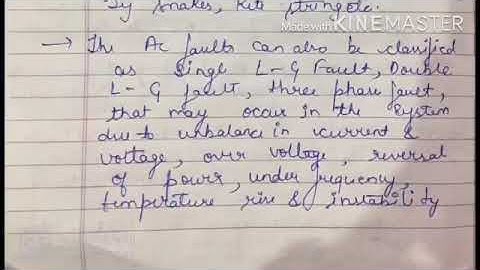 by snakes, kite strings etc.
Made with KINEMASTER
→ The Ac faults can also be classified
as Singl L-G Fault, Double
L-G fault, three phase fault,
that may occur in the system
due to unbalance in current &
voltage, over voltage, reversal
of power, under frequency,
temperature rise & instability